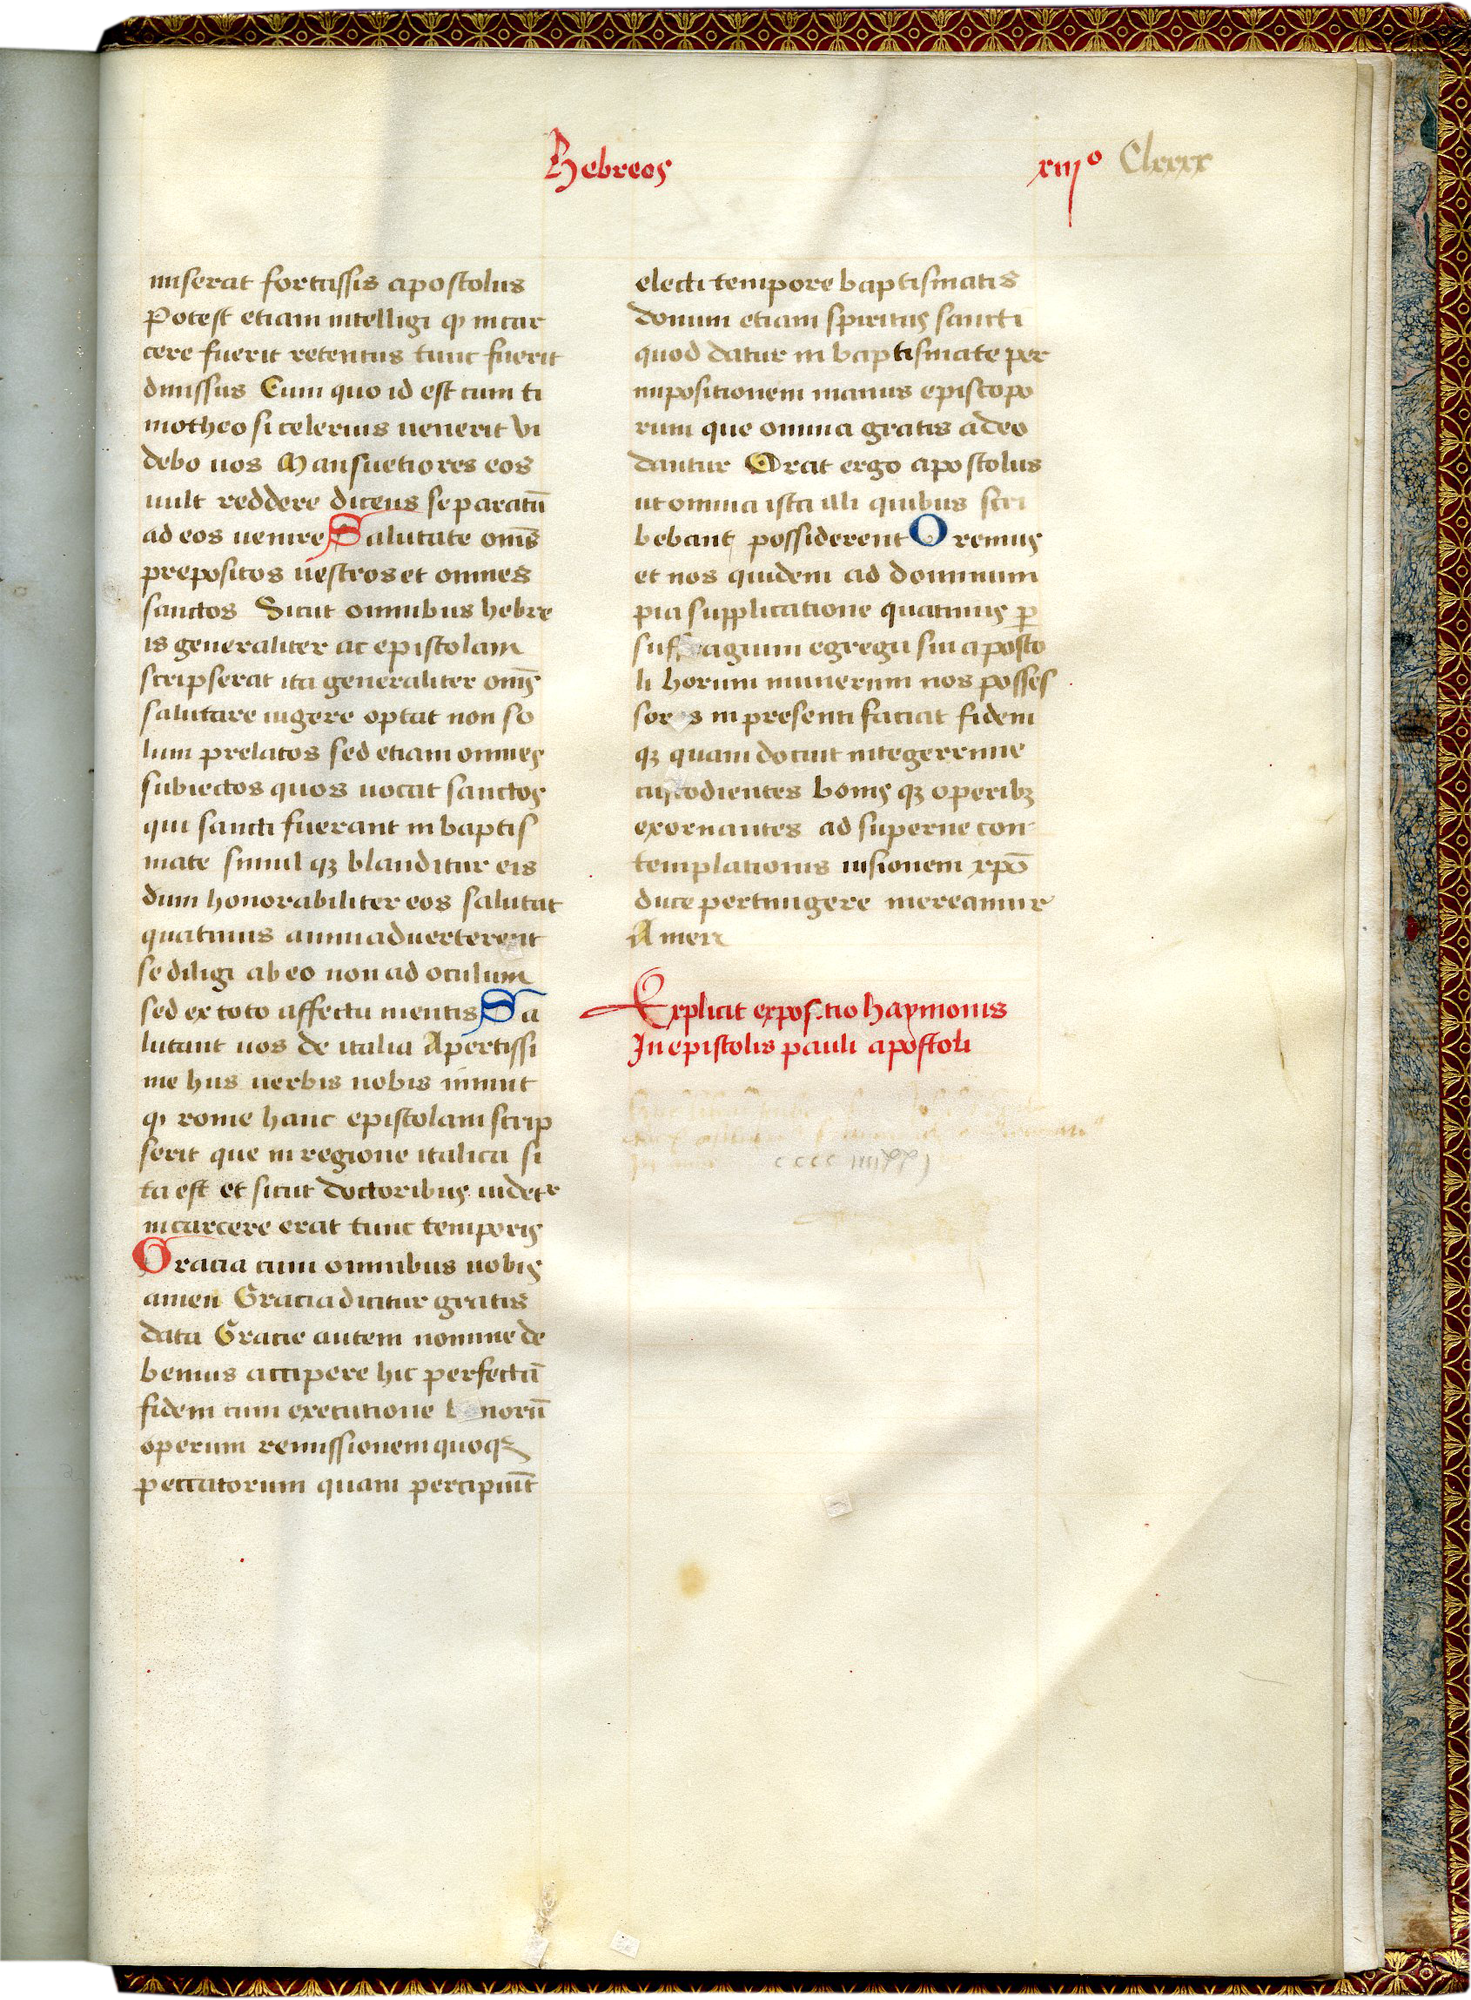 Hebreos
xiijº Clxxxx
miserat fortassis apostolus
Potest etiam intelligi qꝫ in car
cere fuerit retentus tunc fuerit
dimissus Cum quo id est cum ti
motheo si celerius uenerit vi
debo uos Mansuetiores eos
uult reddere dicens se paratū
ad eos uenire Salutate om̄s
prepositos uestros et omnes
sanctos Sicut omnibus hebre
is generaliter ac epistolam
scripserat ita generaliter om̄s
salutare iugere optat non so
lum prelatos sed etiam omnes
subiectos quos uocat sanctos
qui sancti fuerant in baptis
mate simul qꝫ blanditur eis
dum honorabiliter eos salutat
quatinus animaduerterent
se diligi ab eo non ad oculum
sed ex toto affectu mentis Sa
lutant uos de italia Apertissi
me hiis uerbis nobis innuit
qꝫ rome hanc epistolam scrip
serit que in regione italica si
ta est et sicut doctoribus uidetr
in carcere erat tunc temporis
Gracia cum omnibus uobis
amen Gracia dicitur gratis
data Gracie autem nomine de
bemus accipere hic perfectā
fidem cum executione norū
operum remissionem quoqꝫ
peccatorum quam percipiūt
electi tempore baptismatis
donum etiam spiritus sancti
quod datur in baptismate per
impositionem manus episcopo
rum que omnia gratis a deo
dantur Orat ergo apostolus
ut omnia ista illi quibus scri
bebant possiderent Oremus
et nos quidem ad dominum
pia supplicatione quatinus ꝑ
suf agium egregii sui aposto
li horum munerum nos posses
sor s in presenti faciat fidem
qꝫ quam docuit integerrime
custodientes bonis qꝫ operibꝫ
exornantes ad superne con
templationis uisionem xp̄o
duce pertingere mereamur
Amen
Explicit expositio haymonis
In epistolis pauli apostoli
cccc